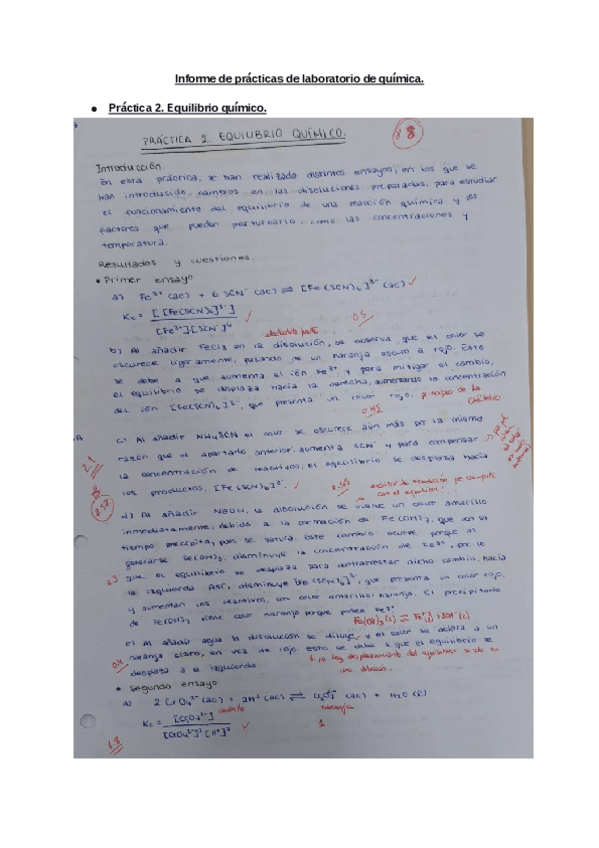 Informe de prácticas de laboratorio de química.
● Práctica 2. Equilibrio químico.
PRÁCTICA 2. EQUILIBRIO QUÍMICO.
8
Introducción
En esta práctica, se han realizado distintos ensayos, en los que se
han introducido cambios en las disoluciones preparadas, para estudiar
el funcionamiento del equilibrio de una reacción química y los
factores que pueden perturbarlo, como las concentraciones y
temperatura.
Resultados y cuestiones.
• Primer ensayo
a) Fe³⁺ (ac) + 6 SCN⁻ (ac) ⇌ [Fe(SCN)₆]³⁻ (ac) ✓
Kc = [[Fe(SCN)₆]³⁻] / [Fe³⁺][SCN⁻]⁶ ✓
0.5
b) Al añadir FeCl₃ en la disolución, se observa que el color se
oscurece ligeramente, pasando de un naranja oscuro a rojo. Esto
se debe a que aumenta el ión Fe³⁺, y para mitigar el cambio,
el equilibrio se desplaza hacia la derecha, aumentando la concentración
del ión [Fe(SCN)₆]³⁻, que presenta un color rojo.
principio de Le
Châtelier
c) Al añadir NH₄SCN el color se oscurece aún más por la misma
razón que el apartado anterior: aumenta SCN⁻ y para compensar
la concentración de reactivos, el equilibrio se desplaza hacia
los productos, [Fe(SCN)₆]³⁻. ✓
2.1
d) Al añadir NaOH, la disolución se vuelve un color amarillo
inmediatamente, debido a la formación de Fe(OH)₃, que con el
tiempo precipita, pues se satura. Este cambio ocurre porque al
generarse Fe(OH)₃, disminuye la concentración de Fe³⁺, por lo
que el equilibrio se desplaza para contrarrestar dicho cambio, hacia
la izquierda. Así, disminuye [Fe(SCN)₆]³⁻, que presenta un color rojo,
y aumentan los reactivos, con color amarillo/naranja. El precipitado
de Fe(OH)₃ tiene color naranja porque posee Fe³⁺
0.3
e) Al añadir agua la disolución se diluye, y el color se aclara a un
naranja claro, en vez de rojo. Esto se debe a que el equilibrio se
desplaza a la izquierda.
0.4
• Segundo ensayo
a) 2 CrO₄²⁻ (ac) + 2H⁺ (ac) ⇌ Cr₂O₇²⁻ (ac) + H₂O (l)
naranja
Kc = [Cr₂O₇²⁻] / [CrO₄²⁻]² [H⁺]² ✓
1
1.8